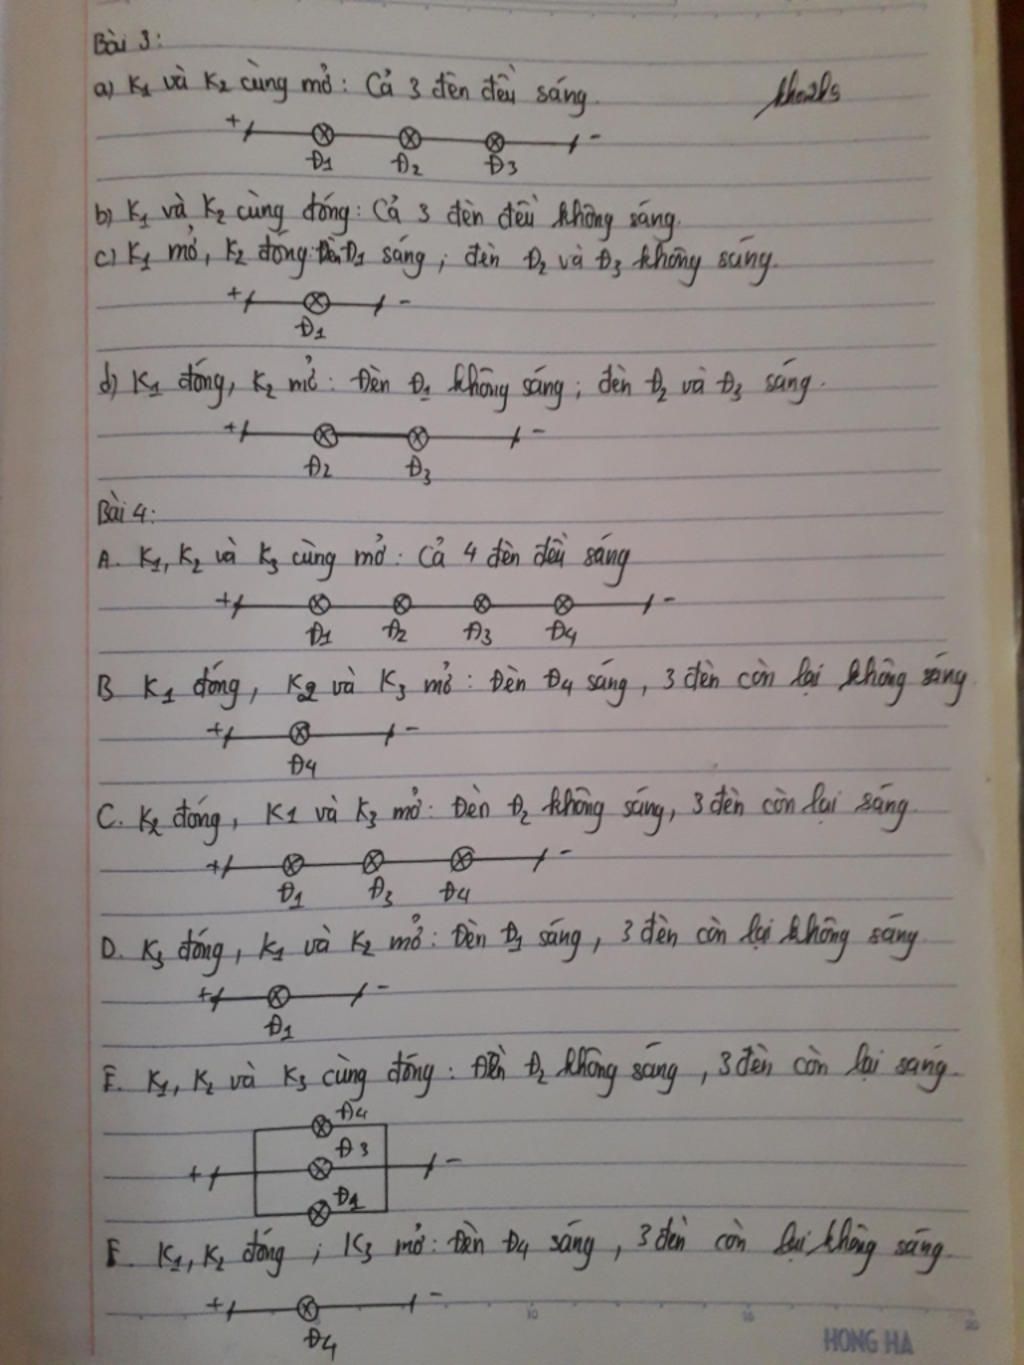 Bài 3:
a) K1 và K2 cùng mở: Cả 3 đèn đều sáng.
+ -
Đ1 Đ2 Đ3
b) K1 và K2 cùng đóng: Cả 3 đèn đều không sáng.
c) K1 mở, K2 đóng: Đèn Đ1 sáng, đèn Đ2 và Đ3 không sáng.
+ -
Đ1
d) K1 đóng, K2 mở: Đèn Đ1 không sáng; đèn Đ2 và Đ3 sáng.
+ -
Đ2 Đ3
Bài 4:
A. K1, K2 và K3 cùng mở: Cả 4 đèn đều sáng
+ -
Đ1 Đ2 Đ3 Đ4
B. K1 đóng, K2 và K3 mở: Đèn Đ4 sáng, 3 đèn còn lại không sáng
+ -
Đ4
C. K2 đóng, K1 và K3 mở: Đèn Đ2 không sáng, 3 đèn còn lại sáng.
+ -
Đ1 Đ3 Đ4
D. K3 đóng, K1 và K2 mở: Đèn Đ1 sáng, 3 đèn còn lại không sáng
+ -
Đ1
E. K1, K2 và K3 cùng đóng: Đèn Đ2 không sáng, 3 đèn còn lại sáng.
Đ4
Đ3
+ -
Đ1
F. K1, K2 đóng; K3 mở: Đèn Đ4 sáng, 3 đèn còn lại không sáng.
+ -
Đ4
10 15 20
HONG HA